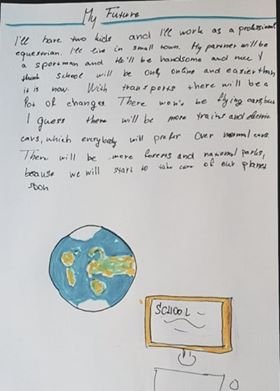 My Future
I'll have two kids and I'll work as a professional
equestrian. I'll live in small town. My partner will be
a sportman and He'll be handsome and nice I
think school will be only online and easier than
it is now. With transports there will be a
lot of changes There won't be flying cars, but
I guess there will be more trains and electric
cars, which everybody will prefer over normal cars.
There will be more forests and national parks,
because we will start to take care of our planet
soon
SCHOOL